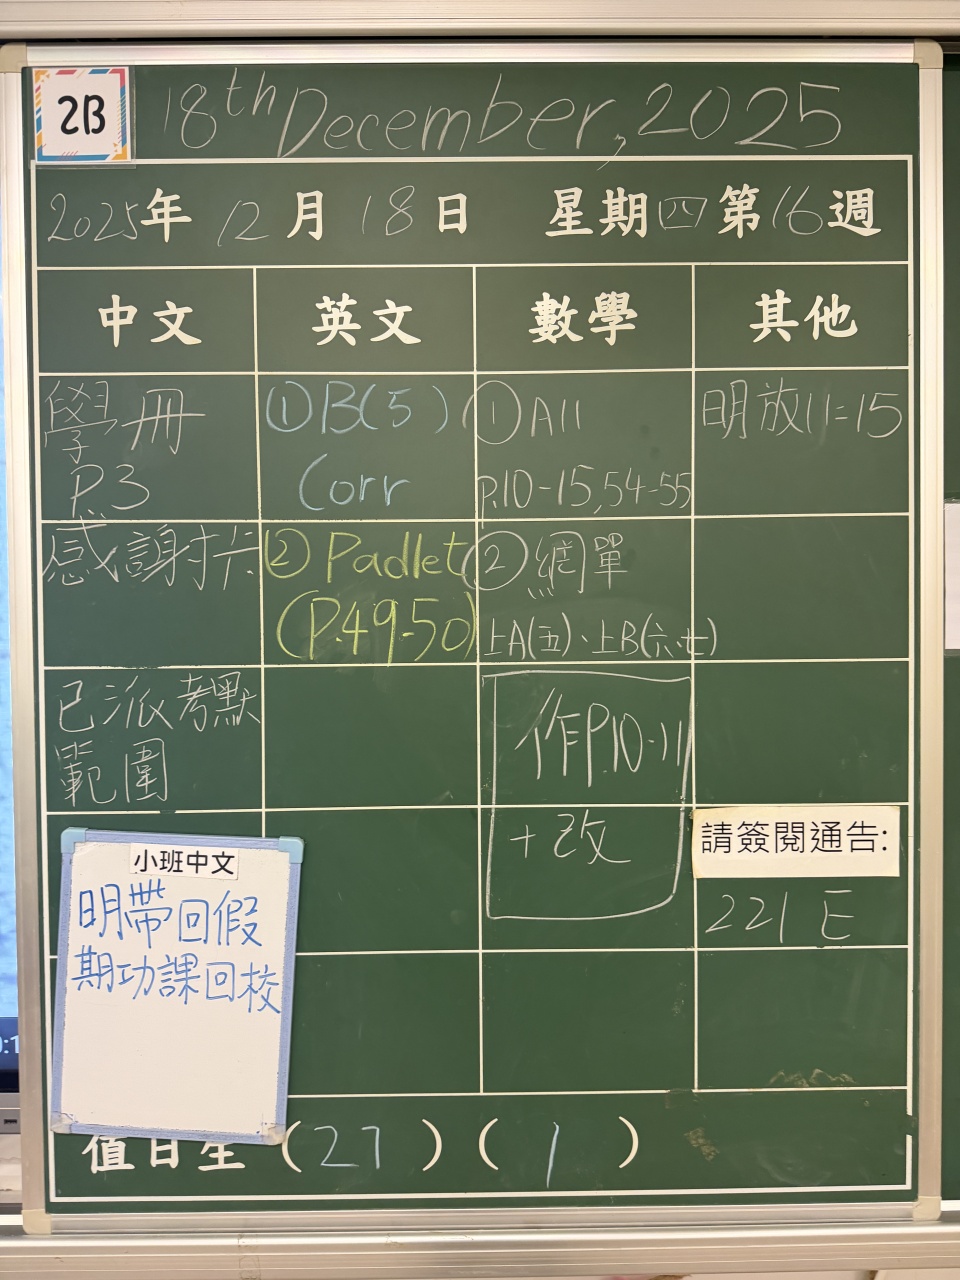 2B
18th December, 2025
2025年 12月 18日 星期四 第16週
中文 英文 數學 其他
學冊
P.3
①B(5)
Corr
①A11
p.10-15,54-55
明放11=15
感謝咭
②Padlet
(P.49-50)
②網單
上A(五)、上B(六、七)
已派考默
範圍
作P.10-11
+改
小班中文
明帶回假
期功課回校
請簽閱通告:
221 E
值日生 (27) (1)